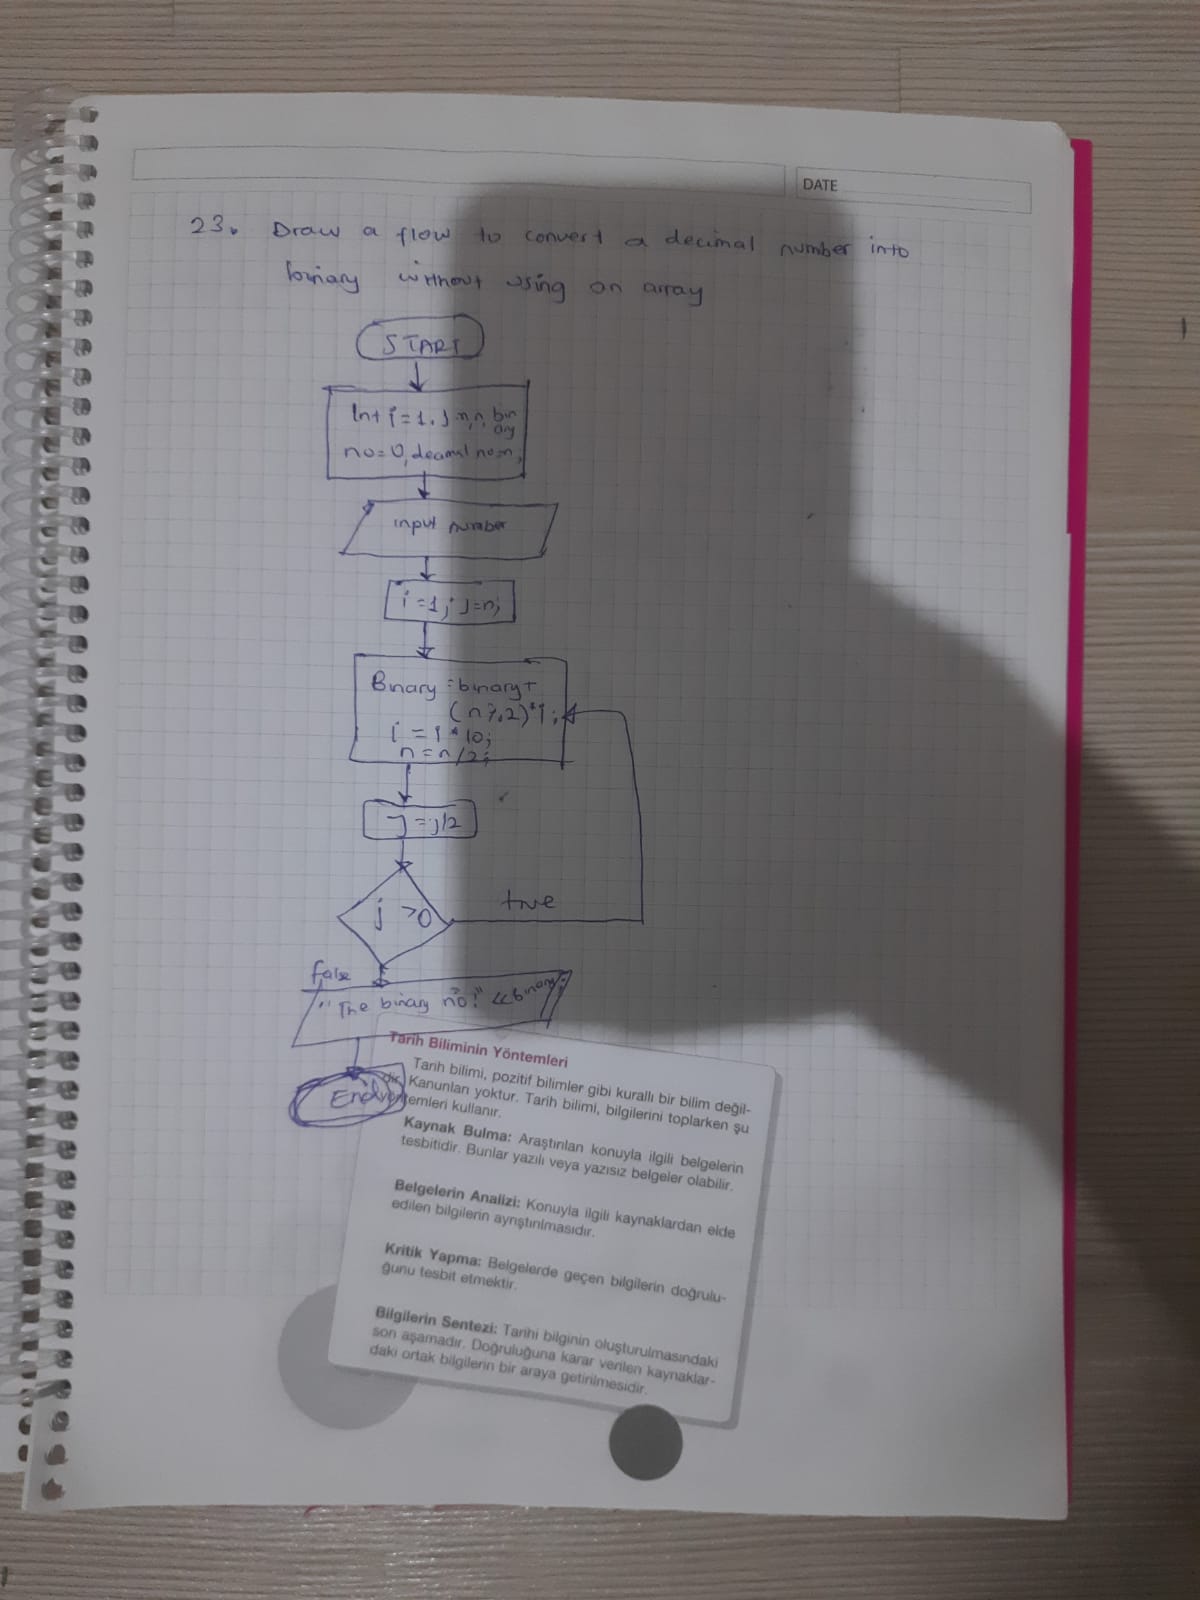 DATE
23. Draw a flow to convert a decimal number into
binary without using an array
START
Int i=1, j n, n, bin
ary
no=0, decimal no=n,
input number
i=1; j=n;
Binary =binary+
(n%2)*i;
i = i * 10;
n=n/2;
J = j/2
j >0
true
false
"The binary no:" <<Binary;
End
Tarih Biliminin Yöntemleri
Tarih bilimi, pozitif bilimler gibi kurallı bir bilim değil-
dir. Kanunları yoktur. Tarih bilimi, bilgilerini toplarken şu
yöntemleri kullanır.
Kaynak Bulma: Araştırılan konuyla ilgili belgelerin
tesbitidir. Bunlar yazılı veya yazısız belgeler olabilir.
Belgelerin Analizi: Konuyla ilgili kaynaklardan elde
edilen bilgilerin ayrıştırılmasıdır.
Kritik Yapma: Belgelerde geçen bilgilerin doğrulu-
ğunu tesbit etmektir.
Bilgilerin Sentezi: Tarihi bilginin oluşturulmasındaki
son aşamadır. Doğruluğuna karar verilen kaynaklar-
daki ortak bilgilerin bir araya getirilmesidir.